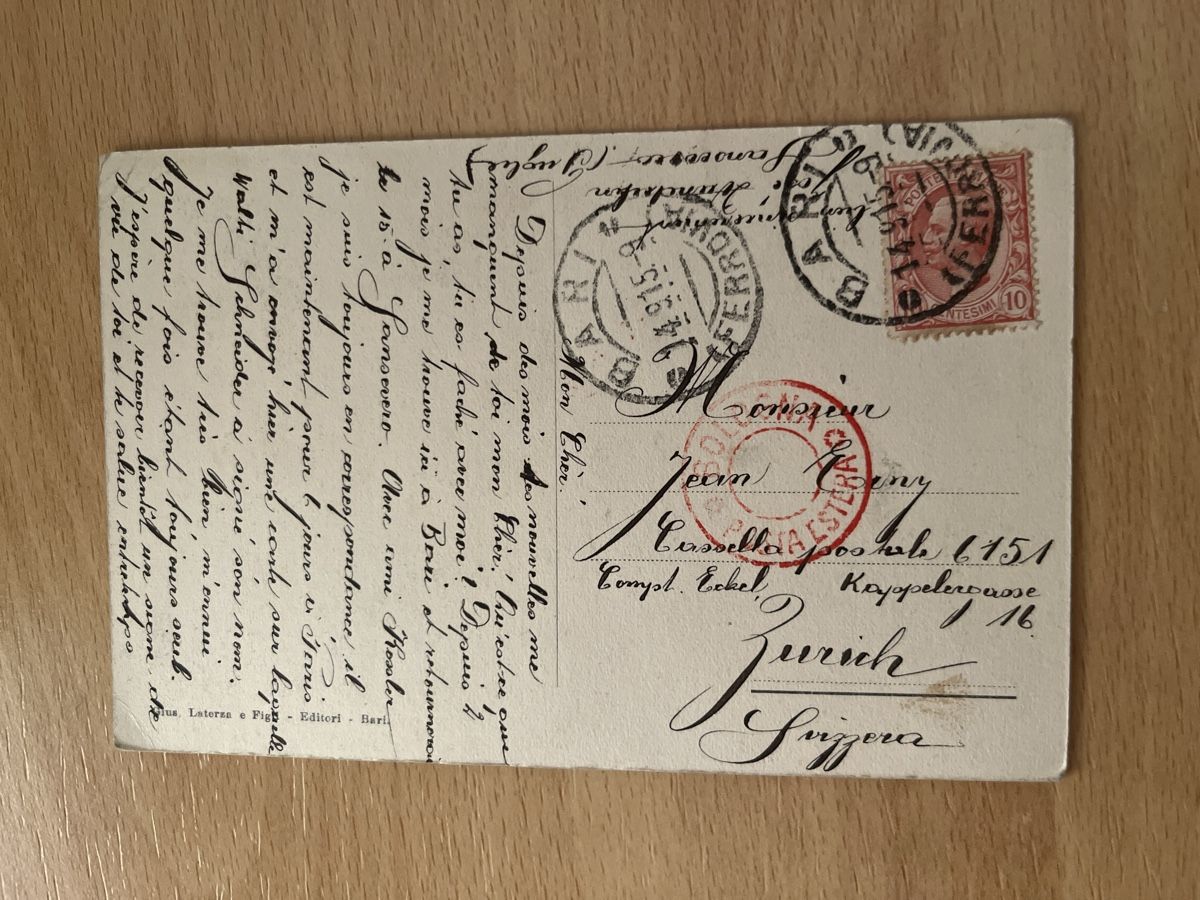 Mon Chèr!
Depuis des mois tes nouvelles me
manquent de toi mon Chèr! Qu'est-ce que
tu as, tu es faché avec moi? Depuis 2
mois je me trouve ici à Bari et retournerai
le 15 à Sansevero. Avec ami Kessler
je suis toujours en correspondance, il
est maintenant pour 6 jours à Paris
et m'a envoyé hier une carte sur laquelle
Walti Schneider a signé són nom.
Je me trouve très bien m'ennui
quelque fois étant toujours seul.
J'espère de recevoir bientôt un signe de
vie de toi et te salue entretemps
Sansevero (Puglie)
BARI
(FERROVIA)
14.9.15-9
BARI
(FERROVIA)
14.9.15-9
POSTE
CENTESIMI 10
BOLOGNA
POSTA ESTERA
Monsieur
Jean Erny
Cassella postale 6151
Compt. Eckel, Kappelergasse
16
Zurich
Svizzera
Gius. Laterza e Figli - Editori - Bari.